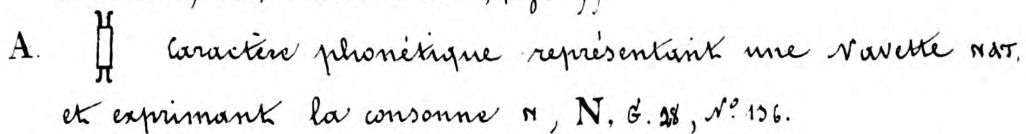 A. caractère phonétique représentant une Navette ⲛⲁⲧ.
et exprimant la consonne ⲛ, N, G. 28, N.º 136.